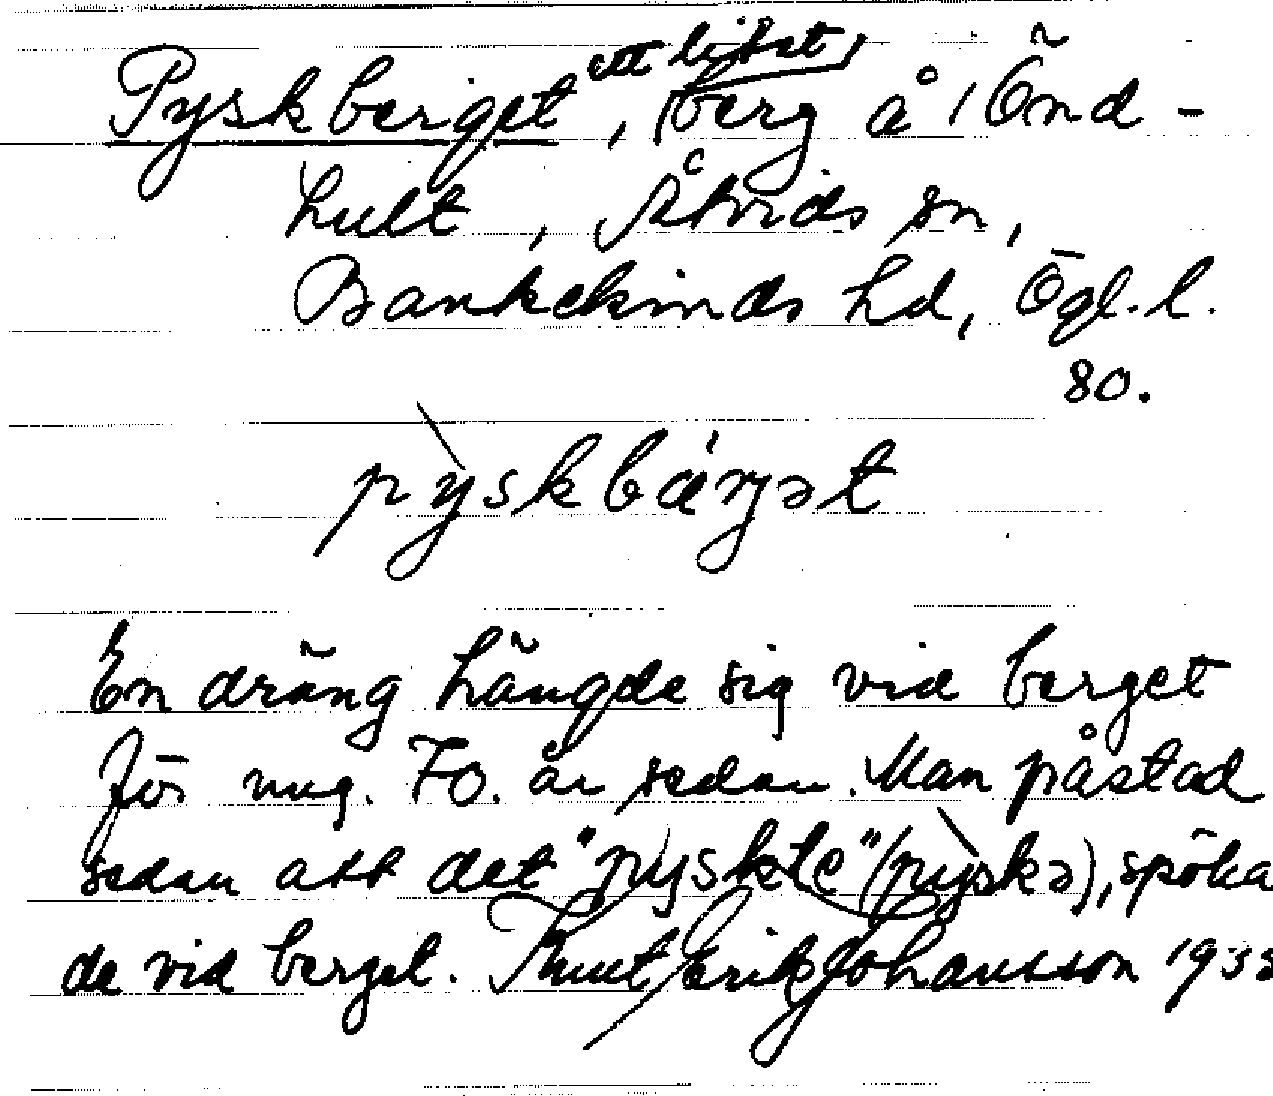 Pyskberget, ett litet berg å Önd-
hult, Åtvids sn,
Bankekinds hd, Ögl. l.
80.
pỳskbárjət
En dräng hängde sig vid berget
för ung. 70. år sedan. Man påstod
sedan att det "pyskte" (pỳskə), spöka
de vid berget. Knut Erik Johansson 1933